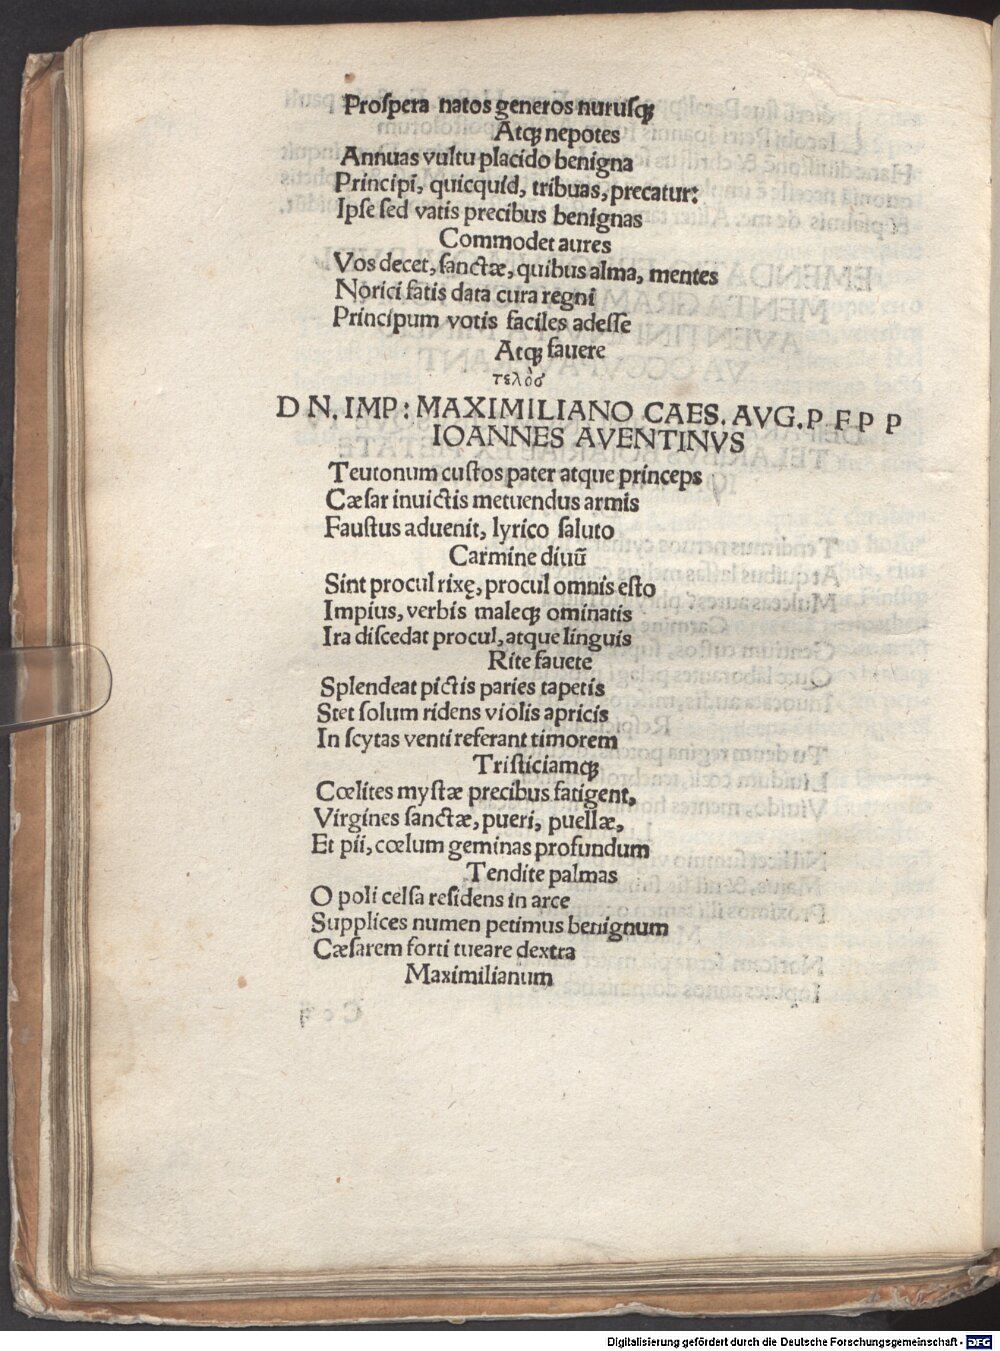 Proſpera natos generos nuruſqꝫ
Atqꝫ nepotes
Annuas vultu placido benigna
Principi, quicquid, tribuas, precatur:
Ipſe ſed vatis precibus benignas
Commodet aures
Vos decet, ſanctæ, quibus alma, mentes
Norici fatis data cura regni
Principum votis faciles adeſſe
Atqꝫ fauere
τελὸσ
D N. IMP: MAXIMILIANO CAES. AVG. P F P P
IOANNES AVENTINVS
Teutonum cuſtos pater atque princeps
Cæſar inuictis metuendus armis
Fauſtus aduenit, lyrico ſaluto
Carmine diuũ
Sint procul rixę, procul omnis eſto
Impius, verbis maleqꝫ ominatis
Ira diſcedat procul, atque linguis
Rite fauete
Splendeat pictis paries tapetis
Stet ſolum ridens violis apricis
In ſcytas venti referant timorem
Triſticiamqꝫ
Cœlites myſtæ precibus fatigent,
Virgines ſanctæ, pueri, puellæ,
Et pii, cœlum geminas profundum
Tendite palmas
O poli celſa reſidens in arce
Supplices numen petimus benignum
Cæſarem forti tueare dextra
Maximilianum
Digitalisierung gefördert durch die Deutsche Forschungsgemeinschaft - DFG